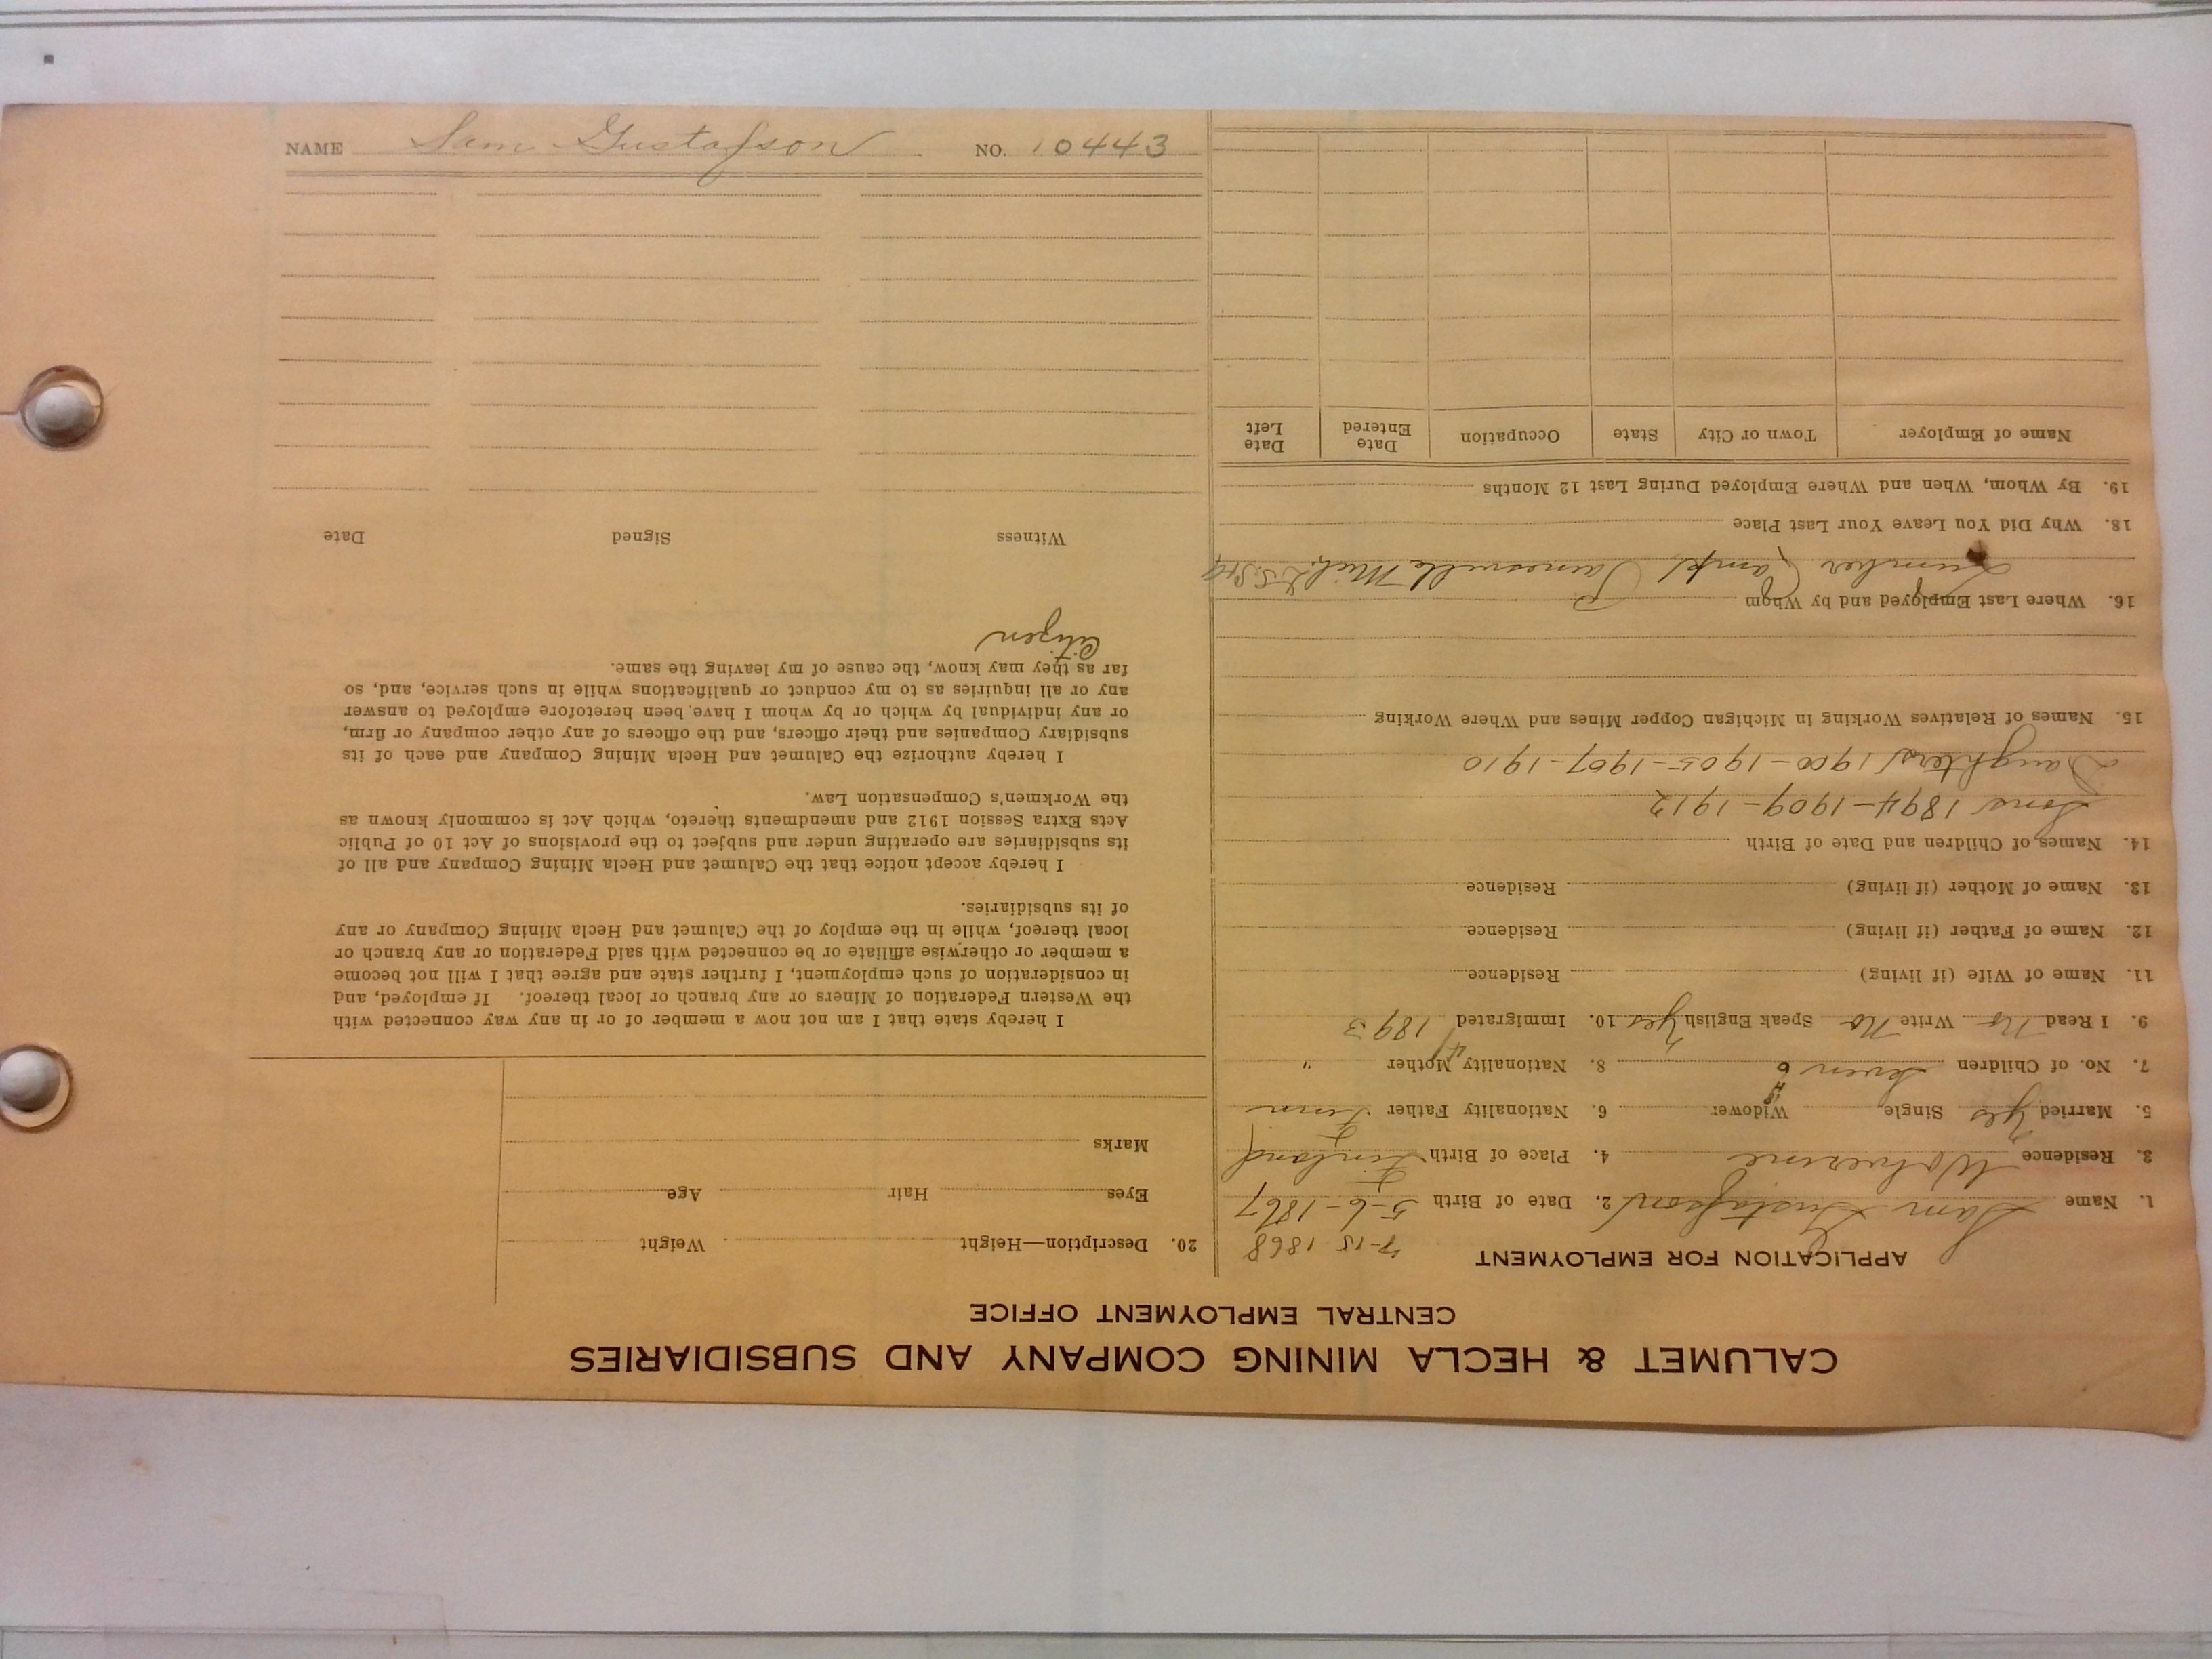 CALUMET & HECLA MINING COMPANY AND SUBSIDIARIES
CENTRAL EMPLOYMENT OFFICE
APPLICATION FOR EMPLOYMENT
7-15 1868
1. Name Sam Gustafson 2. Date of Birth 5-6-1867
3. Residence Wolverine 4. Place of Birth Finland
5. Married Yes Single Widower 6. Nationality Father Finn
7. No. of Children Seven 8. Nationality Mother "
9. I Read No Write No Speak English Yes 10. Immigrated 1893
11. Name of Wife (if living) Residence
12. Name of Father (if living) Residence
13. Name of Mother (if living) Residence
14. Names of Children and Date of Birth
Sons 1894-1909-1912
Daughters 1900-1905-1907-1910
15. Names of Relatives Working in Michigan Copper Mines and Where Working
16. Where Last Employed and by Whom
Lumber Camp Painesville Mich.
18. Why Did You Leave Your Last Place
19. By Whom, When and Where Employed During Last 12 Months
Name of Employer Town or City State Occupation Date Entered Date Left
20. Description—Height Weight
Eyes Hair Age
Marks
I hereby state that I am not now a member of or in any way connected with
the Western Federation of Miners or any branch or local thereof. If employed, and
in consideration of such employment, I further state and agree that I will not become
a member or otherwise affiliate or be connected with said Federation or any branch or
local thereof, while in the employ of the Calumet and Hecla Mining Company or any
of its subsidiaries.
I hereby accept notice that the Calumet and Hecla Mining Company and all of
its subsidiaries are operating under and subject to the provisions of Act 10 of Public
Acts Extra Session 1912 and amendments thereto, which Act is commonly known as
the Workmen's Compensation Law.
I hereby authorize the Calumet and Hecla Mining Company and each of its
subsidiary Companies and their officers, and the officers of any other company or firm,
or any individual by which or by whom I have been heretofore employed to answer
any or all inquiries as to my conduct or qualifications while in such service, and, so
far as they may know, the cause of my leaving the same.
Citizen
Witness Signed Date
NAME Sam Gustafson NO. 10443